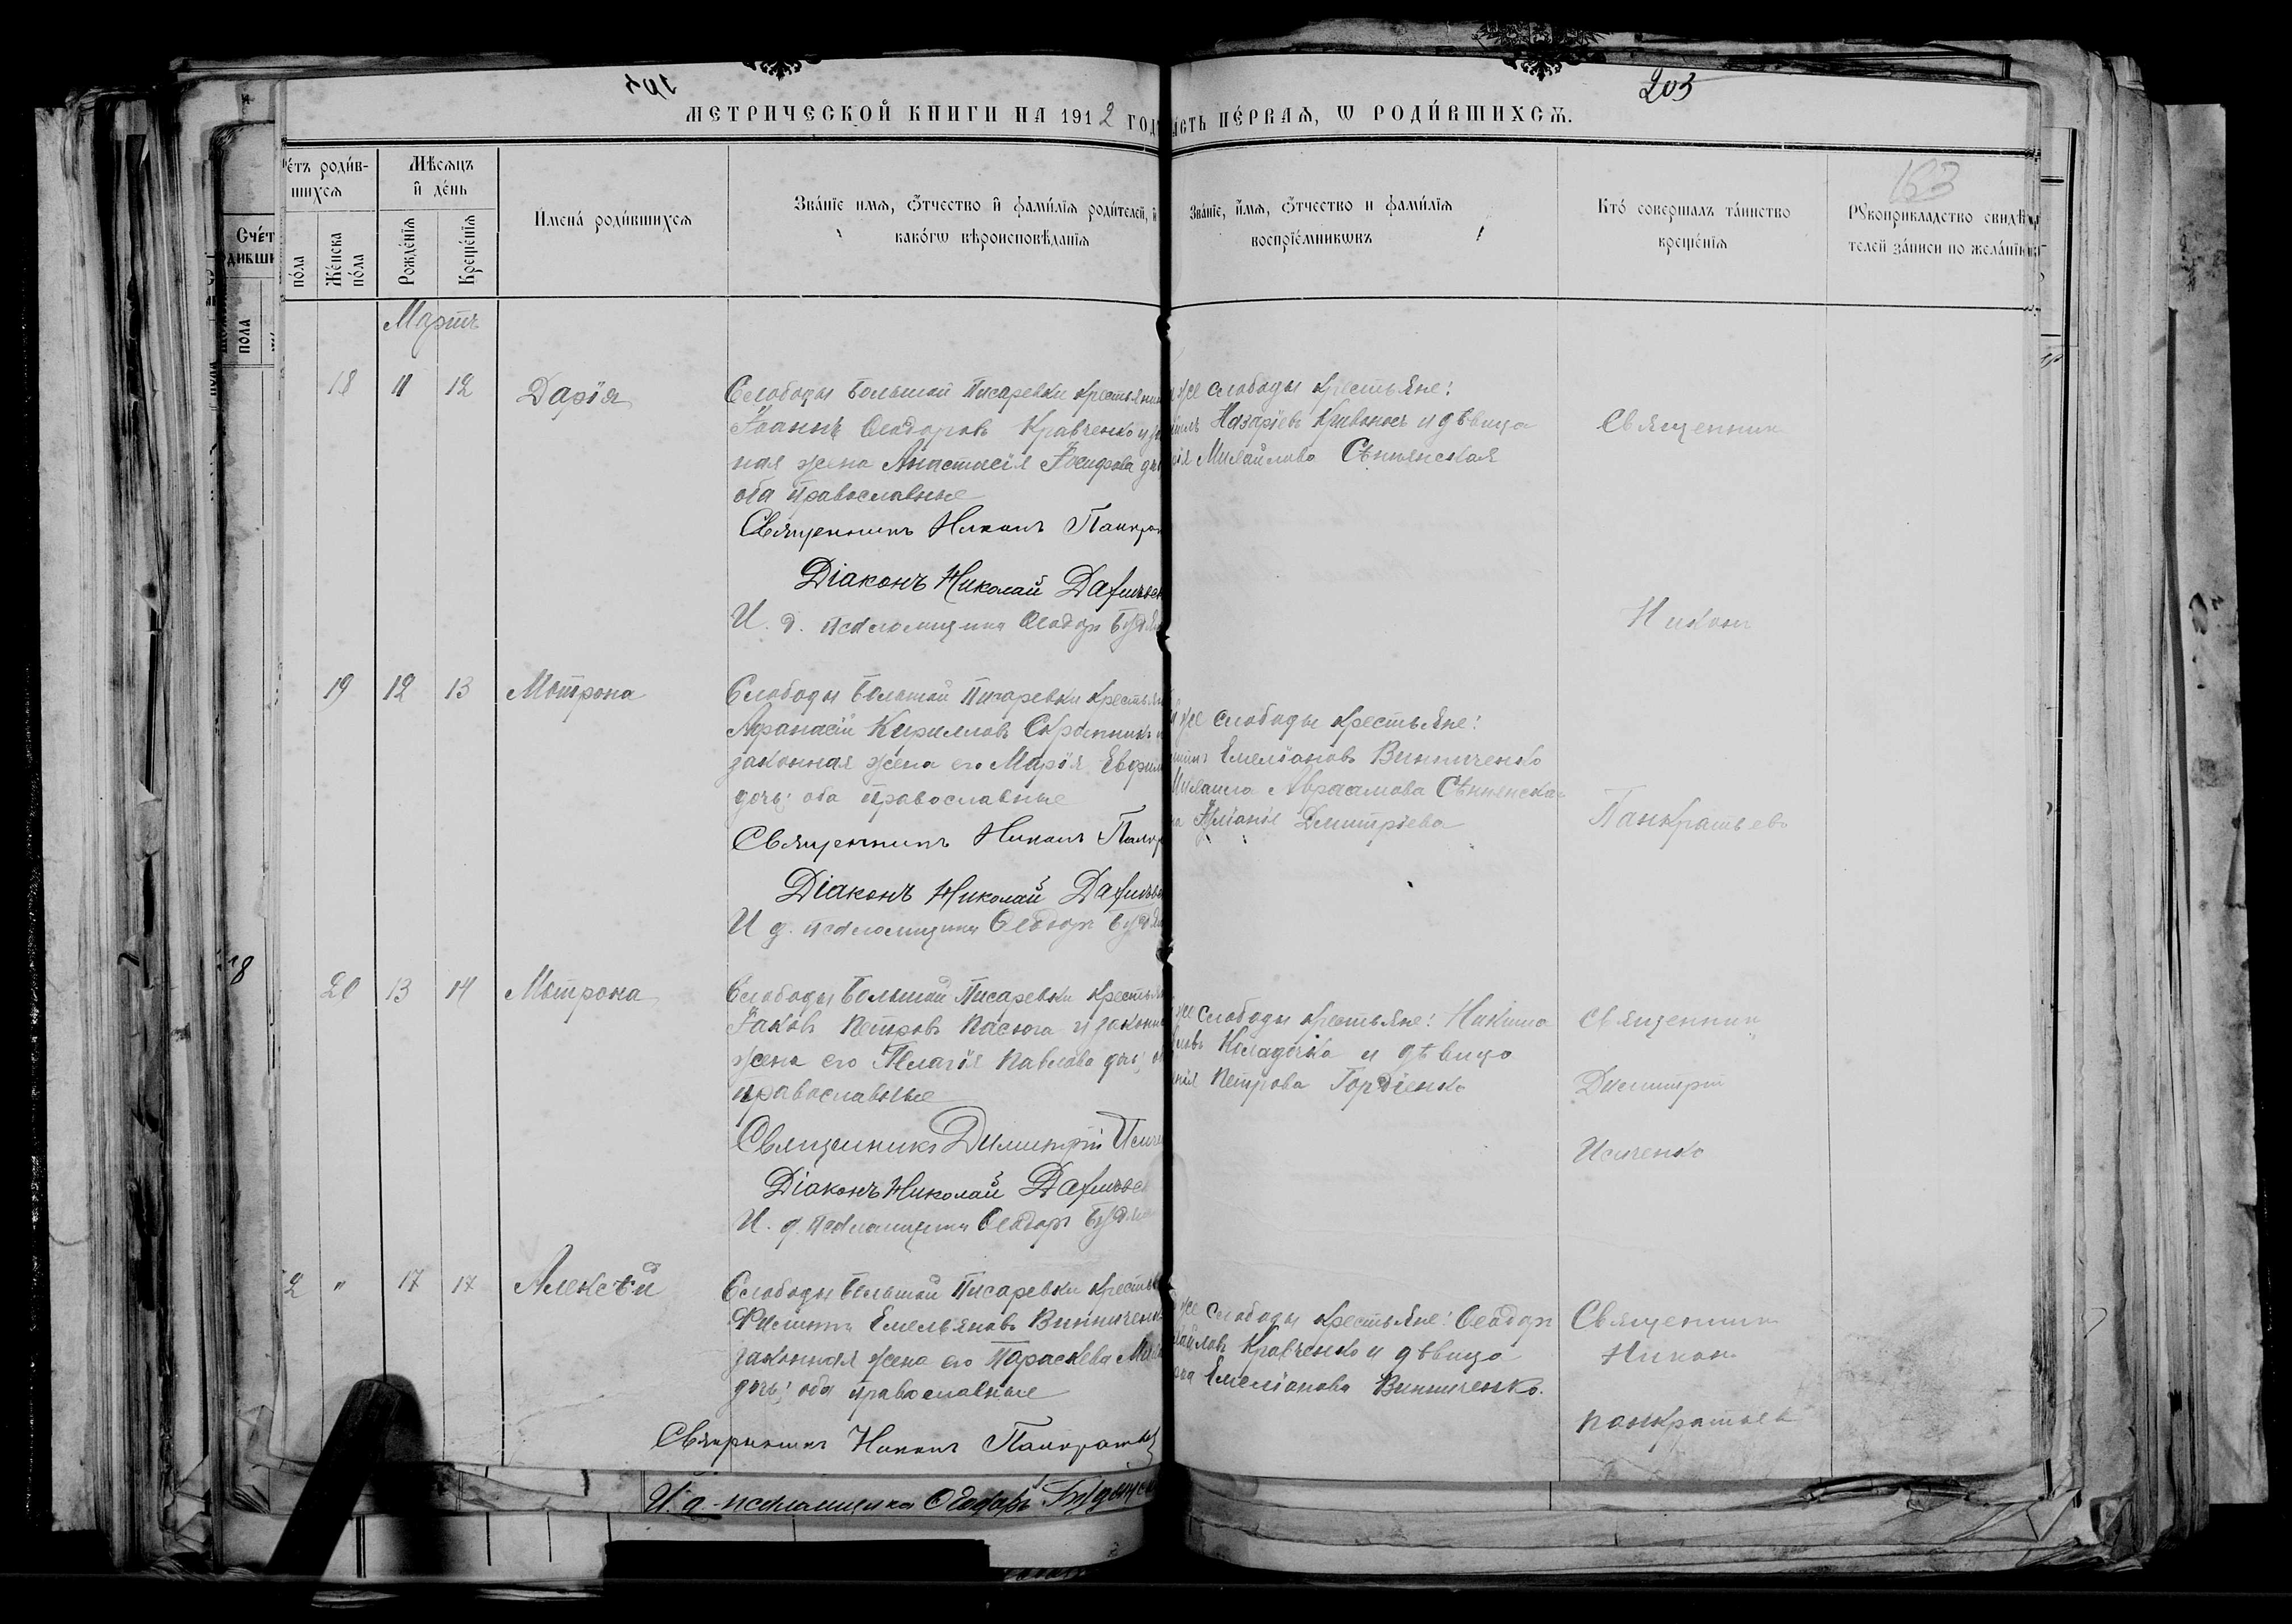 203
МЕТРИЧЕСКОЙ КНИГИ НА 1912 ГОД
АСТЬ ПЕ́РВАѦ, Ѡ РОДИ́ВШИХСѦ.
153
Сче́т
дивши
по́ла
е́тъ роди́в-
шихсѧ
по́ла
Же́нска по́ла
Мѣ́сѧцъ
и҆ де́нь
Рожде́нїѧ
Креще́нїѧ
И҆мена́ роди́вшихсѧ
Зва́нїе имѧ, ѻ҆́тчество и҆ фами́лїѧ роди́телей, и
како́гѡ вѣроисповѣ́данїѧ
Зва́нїе, и҆́мѧ, ѻ҆́тчество и фами́лїѧ
воспрїе́мникѡвъ
Кто́ соверша́лъ та́инство
креще́нїѧ
Рꙋкоприкладство свидѣ́
телей за́писи по жела́нїю
Мартъ
18 11 12 Дарія
Слободы Большой Писаревки крестьянин
Іоаннъ Ѳеодоровъ Кравченко и за
ная жена Анастасія Іосифова
оба православные
Священникъ Никонъ Панкра
Діаконъ Николай
И. д. псаломщика Ѳеодоръ
же слободы крестьяне:
Назаріевъ Кривоносъ и дѣвица
Михайлова Сѣннянская
Священник
Никон
19 12 13 Мотрона
Слободы Большой Писаревки крестьян
Афанасій Кирилловъ и
законная жена его Марія Евфим
дочь; оба православные
Священникъ Никонъ Панкр
Діаконъ Николай
И д. псаломщика Ѳеодоръ
же слободы крестьяне:
Емеліановъ Винниченко
Авраамова Сѣннянская
Іуліанія Дмитріева
Панкратьевъ
20 13 14 Мотрона
Слободы Большой Писаревки крестьян
Іаковъ Петровъ Пасюга и законн
жена его Пелагія Павлова дочь;
православные
Священникъ Димитрій Исич
Діаконъ Николай
И. д. псаломщика Ѳеодоръ
же слободы крестьяне: Никита
и дѣвица
Петрова Гордіенко
Священник
Димитрій
Исиченко
18
2 " 17 17 Алексѣй
Слободы Большой Писаревки крестья
Филиппъ Емельяновъ Винниченк
законная жена его Параскева Мих
дочь; оба православные
Священникъ Никонъ Панкратьев
же слободы крестьяне: Ѳеодоръ
Кравченко и дѣвица
Емеліанова Винниченко.
Священник
Никон
Панкратьев
И. д. псаломщика Ѳеодоръ